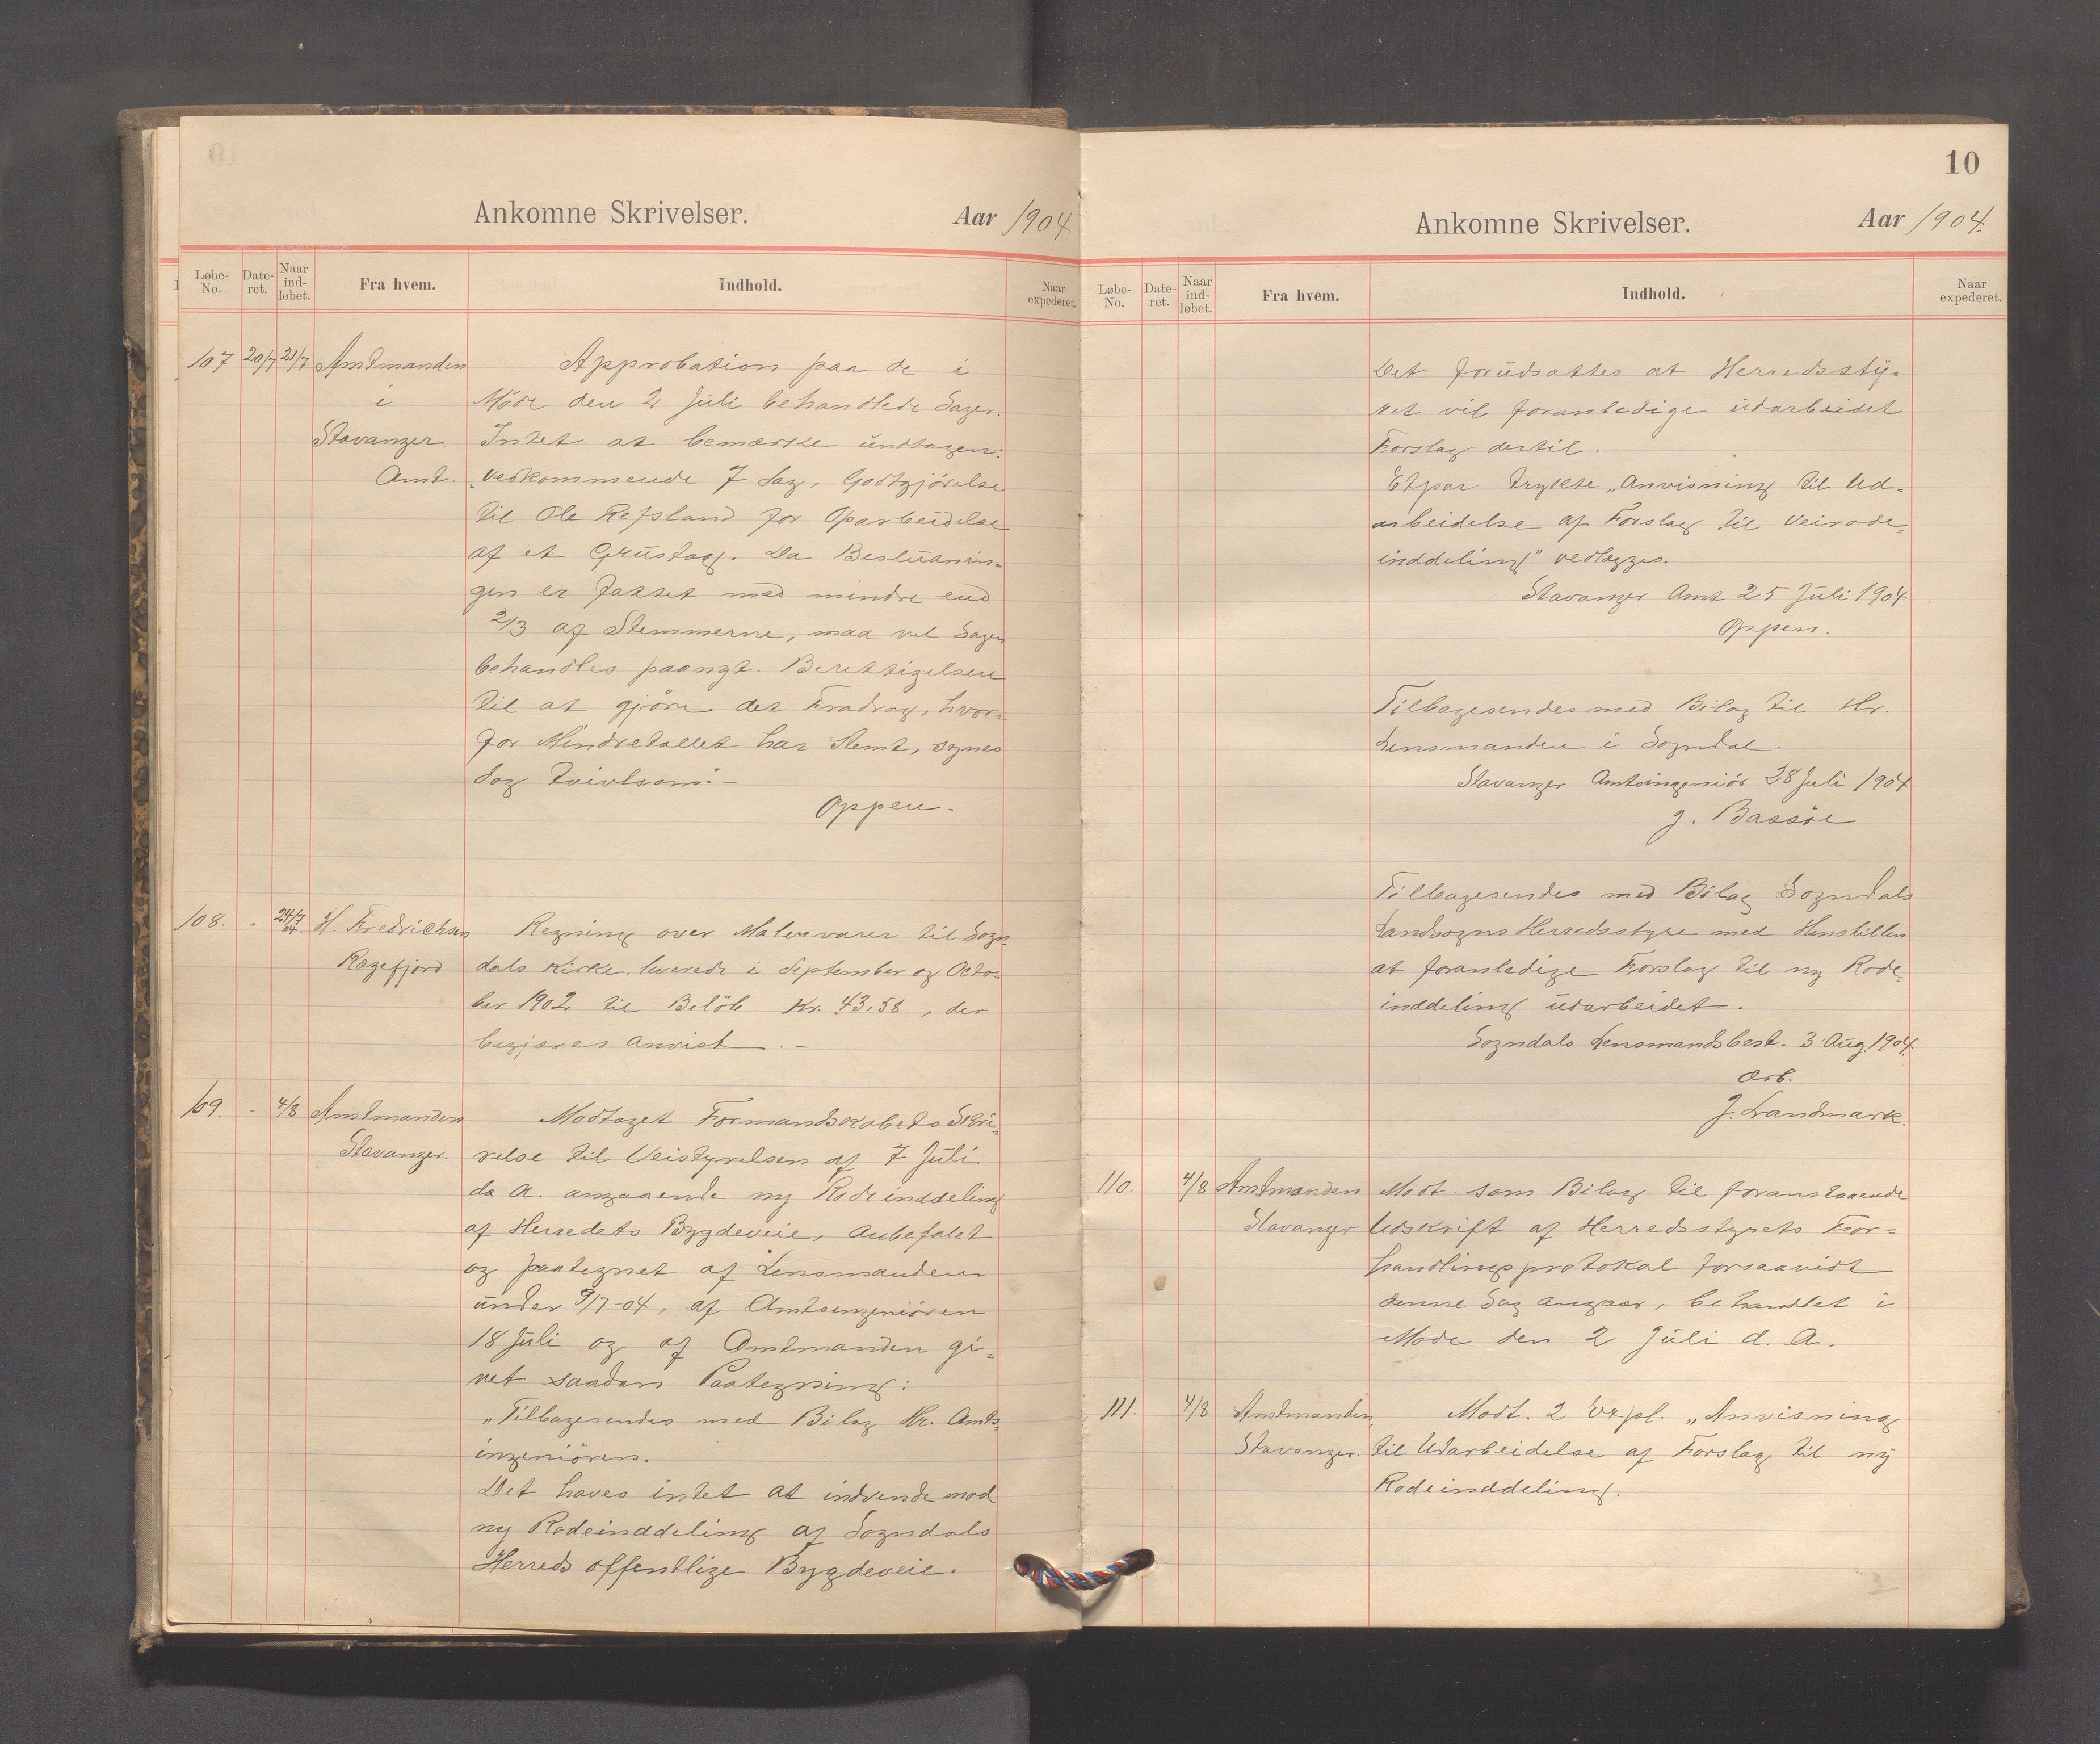 Ankomne Skrivelser.
Aar 1904.
Løbe-No.
Date-ret.
Naar ind-løbet.
Fra hvem.
Indhold.
Naar expederet.
107 20/7 21/7 Amtmanden i Stavanger Amt.
Approbation paa de i
Møde den 2 Juli behandlede Sager.
Intet at bemærke undtagen:
"vedkommende 7 Sag, Godtgjörelse
til Ole Refsland for Oparbeidelse
af et Grustag. Da Beslutnin=
gen er fattet med mindre end
2/3 af Stemmerne, maa vel Sagen
behandles paanyt. Berettigelsen
til at gjøre det Fradrag, hvor=
for Mindretallet har Stemt, synes
dog tvivlsom" -
Oppen.
108. - 24/7 04. H. Fredrichsen Rægefjord
Regning over Malervarer til Sogn-
dals Kirke, leverede i September og Octo=
ber 1902 til Beløb Kr. 43,58, der
begjæres anvist. -
109. - 4/8 Amtmanden Stavanger.
Modtaget Formandskabets Skri=
velse til Veistyrelsen af 7 Juli
da A. angaaende ny Rodeinddeling
af Herredets Bygdeveie, anbefalet
og paategnet af Lensmanden
under 9/7-04, af Amtsingeniören
18 Juli og af Amtmanden gi=
vet saadan Paategning:
"Tilbagesendes med Bilag Hr. Amts-
ingeniören.
Det haves intet at indvende mod
ny Rodeinddeling af Sogndals
Herreds offentlige Bygdeveie.
10
Ankomne Skrivelser.
Aar 1904.
Løbe-No.
Date-ret.
Naar ind-løbet.
Fra hvem.
Indhold.
Naar expederet.
Det forudsættes at Herredssty=
ret vil foranledige udarbeidet
Forslag dertil.
Etpar trykte "Anvisning til Ud=
arbeidelse af Forslag til Veirode=
inddeling" vedlægges.
Stavanger Amt 25 Juli 1904
Oppen.
Tilbagesendes med Bilag til Hr.
Lensmanden i Sogndal.
Stavanger Amtsingeniör 28 Juli 1904
J. Bassöe
Tilbagesendes med Bilag Sogndals
Landsogns Herredsstyre med Henstillen
at foranledige Forslag til ny Rode=
inddeling udarbeidet.
Sogndals Lensmandsbest. 3 Aug. 1904.
Ærb.
J. Landmark.
110. 4/8 Amtmanden Stavanger
Modt. som Bilag til foranstaaende
Udskrift af Herredsstyrets For=
handlingsprotokol forsaavidt
denne Sag angaar, behandlet i
Møde den 2 Juli d. A.
111. 4/8 Amtmanden Stavanger.
Modt. 2 Expl. "Anvisning
til Udarbeidelse af Forslag til ny
Rodeinddeling.